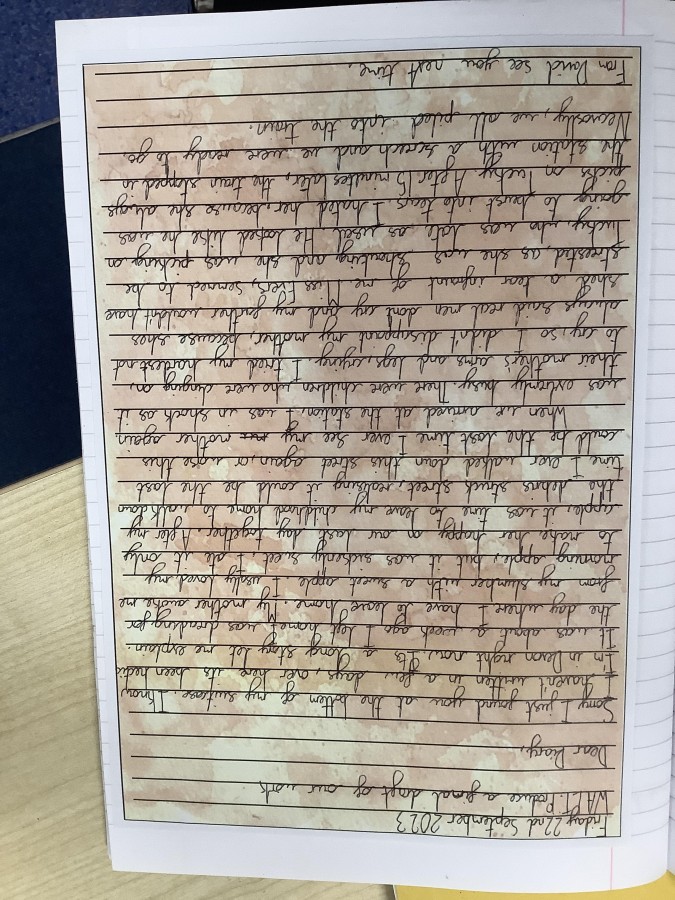 Friday 22nd September 2023
WALT: Produce a final draft of our work
Dear Diary,
Sorry I just found you at the bottem of my suitcase. I know
I haven't written in a few days, over here its been hectic
I'm in Devon right now, Its a long story let me explain.
It was about a week ago I left home. I was dreading for
the day where I have to leave home. My mother awoke me
from my slumber with a sweet apple I usally loved my
morning apple, but it was sickenly sweet, I ate it only
to make her happy on our last day together. After my
apple, it was time to leave my childhood home to walk down
the debris struck street, realising it could be the last
time I ever walked down this street again, or worse this
could be the last time I ever see my mother again
When we arrived at the station, I was in shock as it
was extremly busy. There were children who were clinging on,
their mother's arms and legs, crying. I tried my hardest not
to cry, so I didn't disappoint my mother, because shes
always said real men dont cry and my father wouldn't have
shed a tear infront of me. Miss Evers, seemed to be
stressed, as she was shouting and she was picking on
Tucky who was late as usual. He looked like he was
going to beurst into tears. I hated her, because she always
picks on Tucky. After 15 minutes later, the train stopped in
the station with a screech and we were ready to go.
Nervously, we all piled into the train.
From David see you next time.